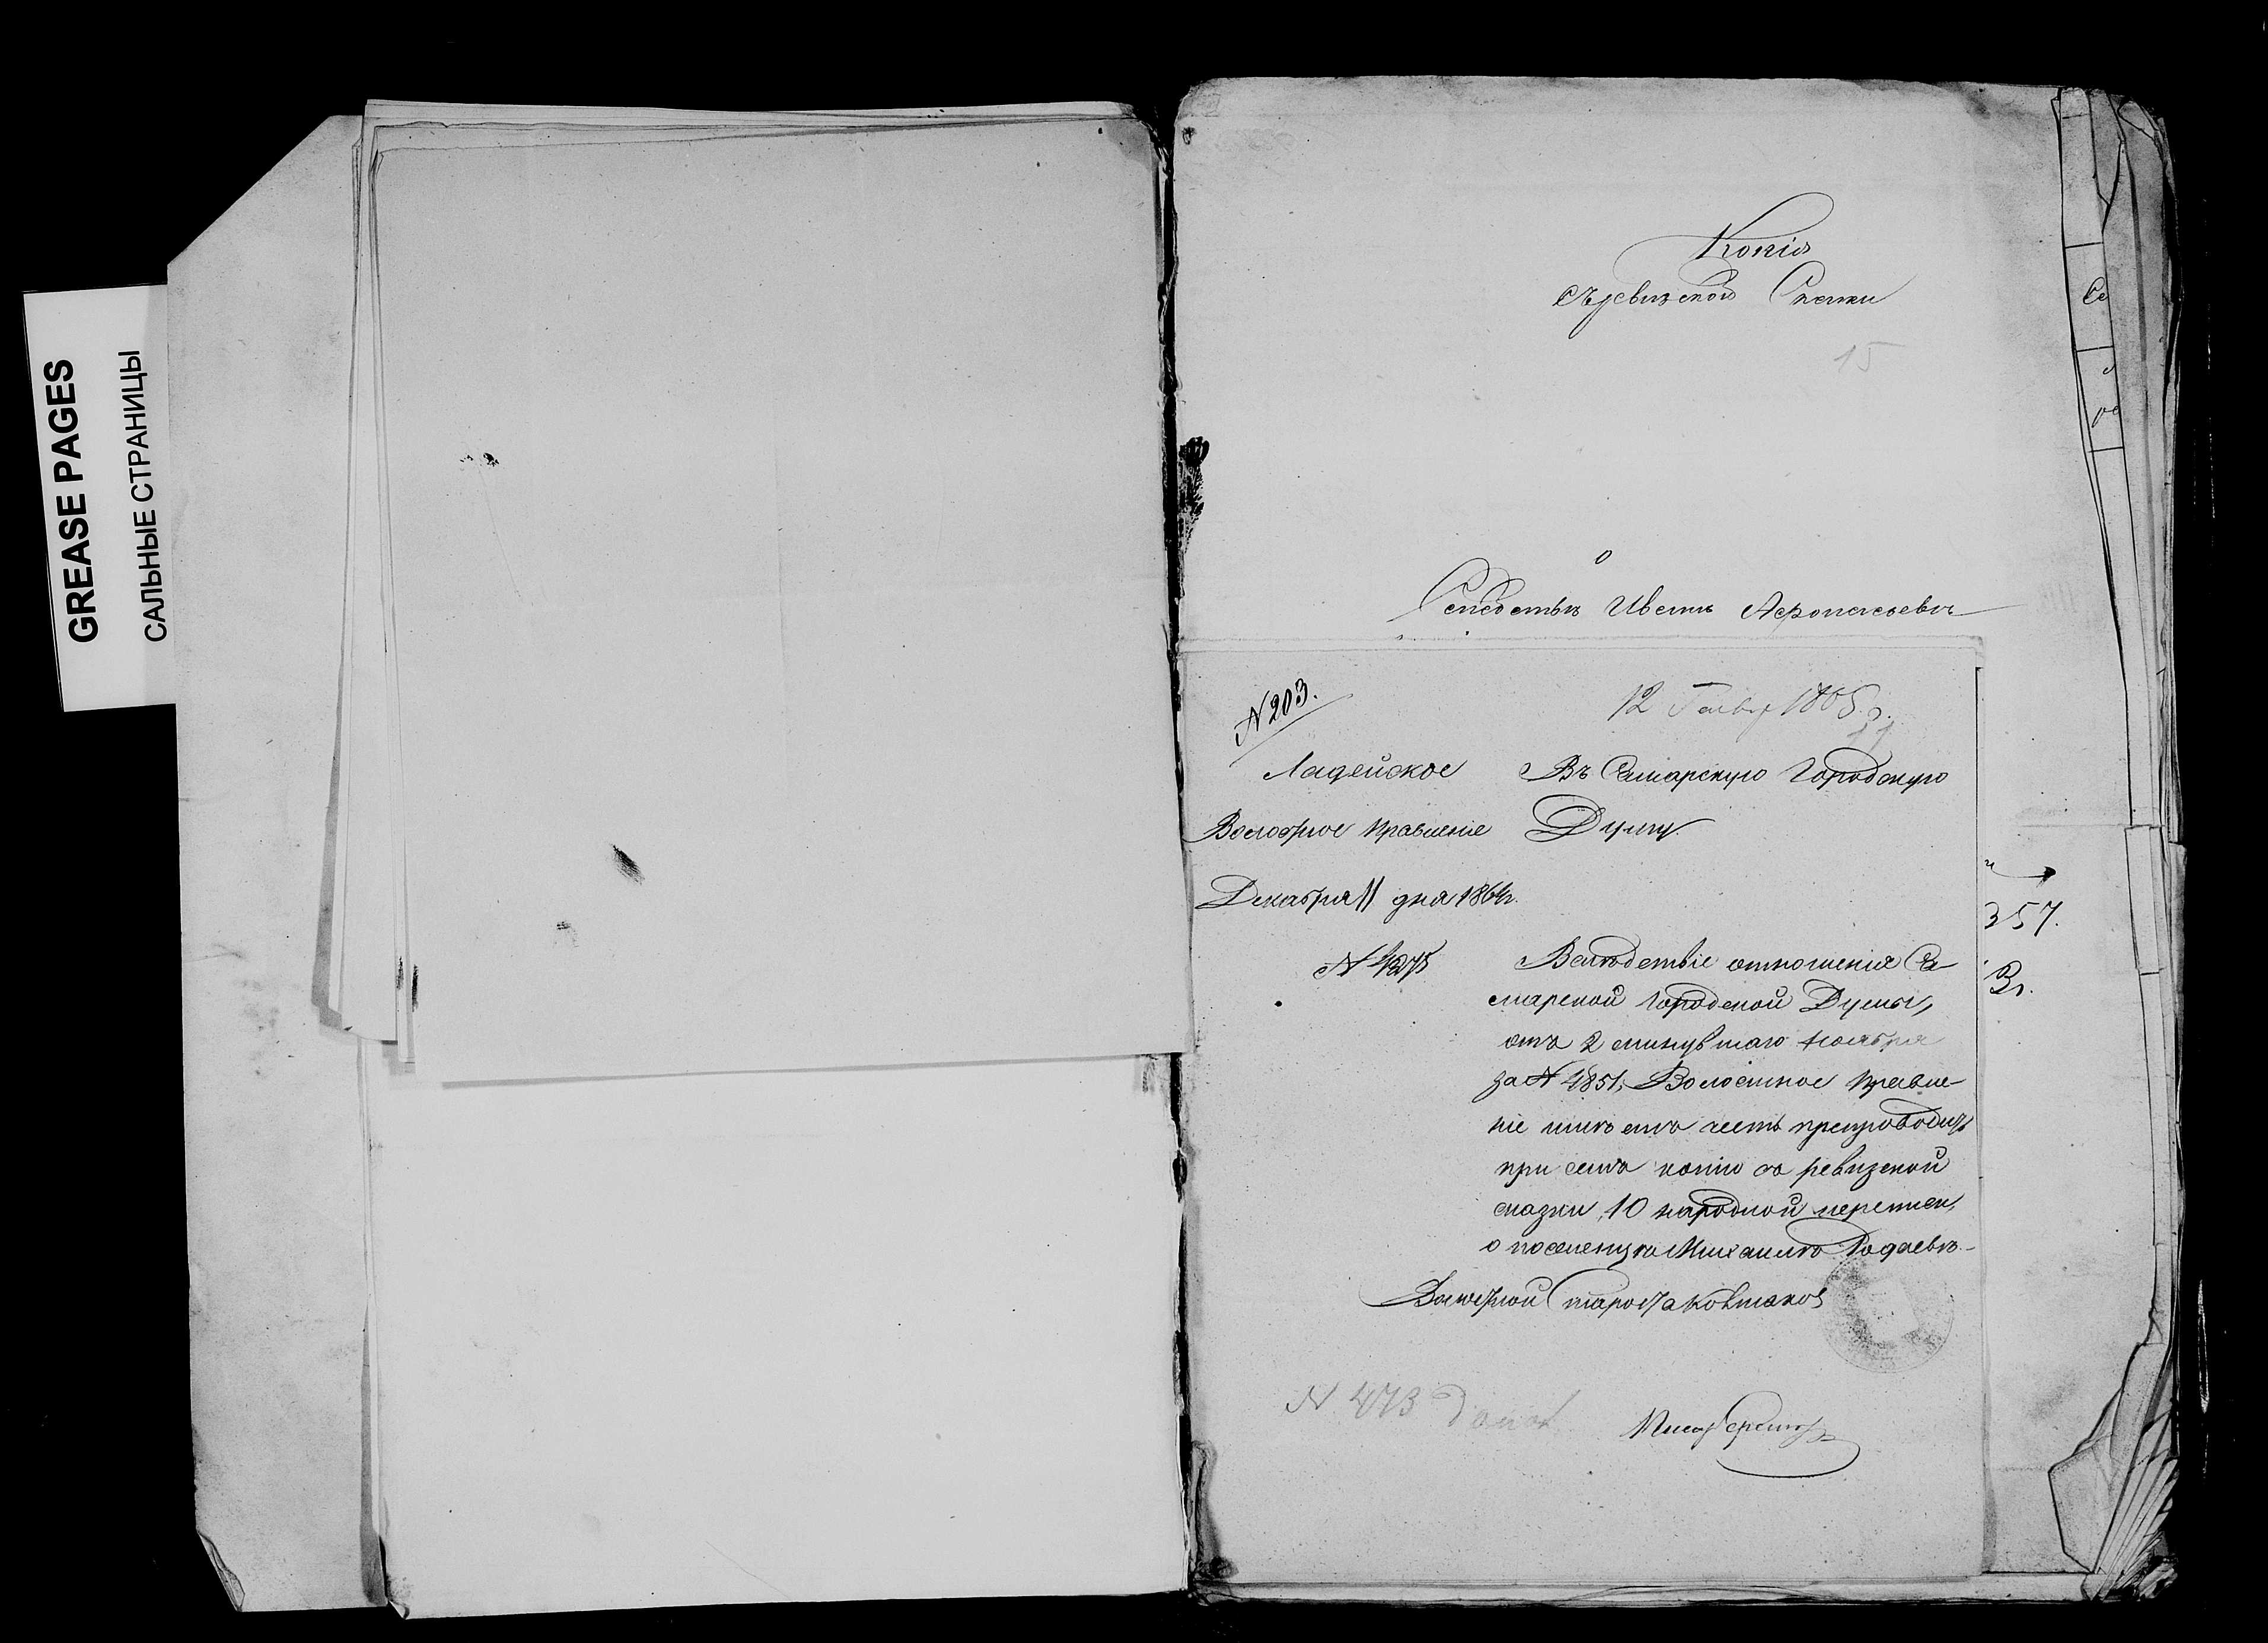 GREASE PAGES
САЛЬНЫЕ СТРАНИЦЫ
Копія
съ ревизской Скаски
15
о
Иванѣ
N 203.
12 Генвр 1865 г.
Ладейское
Волостное Правленіе
Декабря 11 дня 1864 г.
N 4275
Въ Самарскую Городскую
Думу
Вслѣдствіе отношенія Са-
марской Городской Думы,
отъ 2 минувшаго Ноября
за N 4851, Волостное Правле-
ніе имѣетъ честь препроводить
при семъ копію съ ревизской
сказки, 10 народной переписи,
о поселенцѣ Михаилѣ
Волостной Староста
Писарь
N 473
357.